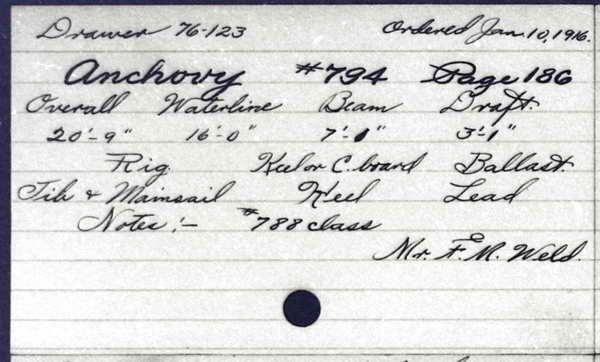 Drawer 76-123 Ordered Jan. 10, 1916.
Anchovy #794 Page 186
Overall Waterline Beam Draft.
20'-9" 16'-0" 7'-1" 3'-1"
Rig Keel or C. board Ballast.
Jib & Mainsail Keel Lead
Notes:- #788 class
Mr. F. M. Weld.